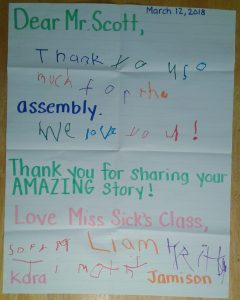 March 12, 2018
Dear Mr. Scott,
Thank you so
much for the
assembly.
We love you!
Thank you for sharing your
AMAZING story!
Love Miss Sick's Class,
Liam
Kara Jamison